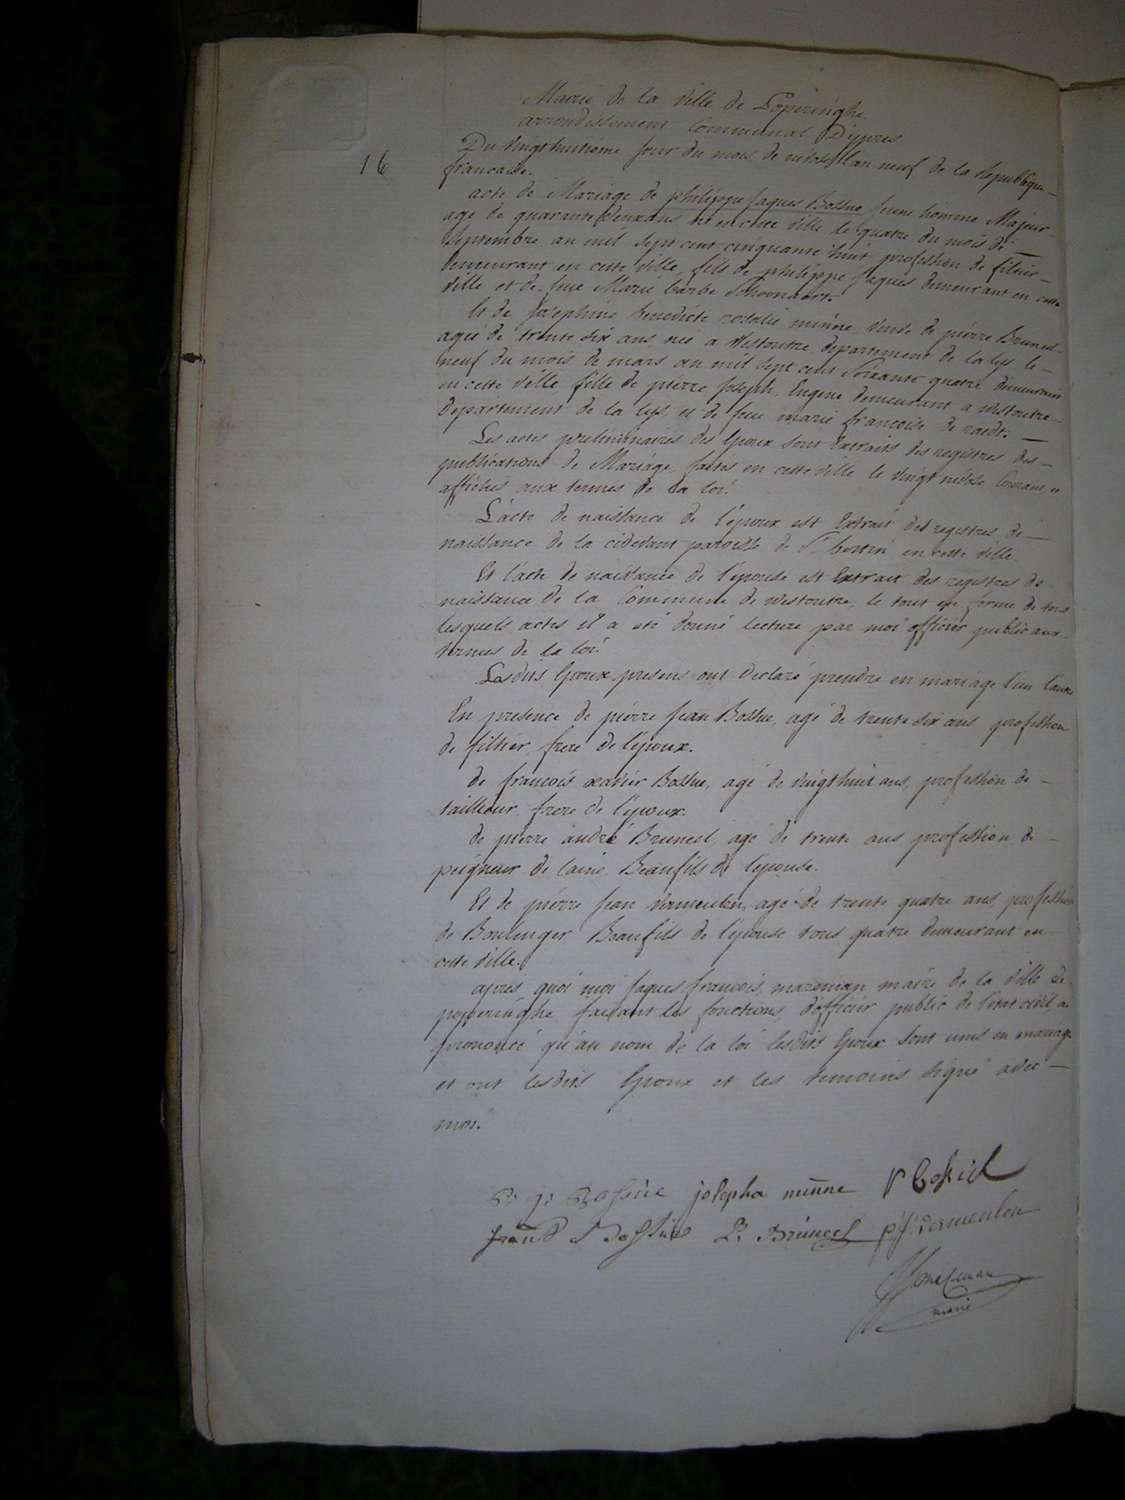 Mairie de la ville de Poperinghe
arrondissement Communal D'ypres
16
Du vingthuitieme jour du mois de nivôse l'an neuf de la Republique
francaise.
acte de Mariage de philippe Jaques Bossue jeune homme Majeur
agé de quarante deuxans né en cette ville le quatre du mois de
Septembre an mil sept cent cinquante huit profession de filtier
Demeurant en cette ville, fils de philippe Jaques demeurant en cette
ville et de feue Marie barbe
Et de Josephine benedicte rosalie minne, veuve de pierre Bruneel
agée de trente six ans née a Westoutre departement de la lys le
neuf du mois de mars an mil sept cent soixante quatre demeurant
en cette ville, fille de pierre Joseph Eugene demeurant a westoutre
departement de la lys, et de feue marie francoise de raedt.
Les actes preliminaires des Epoux sont Extraits des registres des
publications de Mariage faites en cette ville le vingt nivôse Courant, et
affichés aux termes de la loi.
L'acte de naissance de l'époux est Extrait des registres de
naissance de la cidevant paroisse de St bertin en cette ville.
Et l'acte de naissance de l'epouse est Extrait des registres de
naissance de la Commune de westoutre, le tout en forme de tous
lesquels actes il a eté donné lecture par moi officier public aux
termes de la loi.
Lesdits Epoux presens ont declaré prendre en mariage l'un l'autre
En presence de pierre Jean Bossue, agé de trente six ans profession
de filtier, frere de l'époux.
de francois xavier Bossue, agé de vingthuit ans, profession de
tailleur, frere de l'époux.
de pierre andré Bruneel, agé de trente ans profession de
peigneur de laine, Beaufils de l'epouse.
Et de pierre Jean vermeulen, agé de trente quatre ans, profession
de Boulenger Beaufils de l'épouse tous quatre demeurant en
cette ville.
apres quoi moi Jaques francois mazeman maire de la ville de
poperinghe faisant les fonctions d'officier public de l'état civil, a
prononcé qu'au nom de la loi lesdits Epoux sont unis en mariage
et ont lesdits Epoux et les temoins signé avec
moi.
P: J: Bossue josepha minne
P: Bruneel p: J: vermeulen
maire